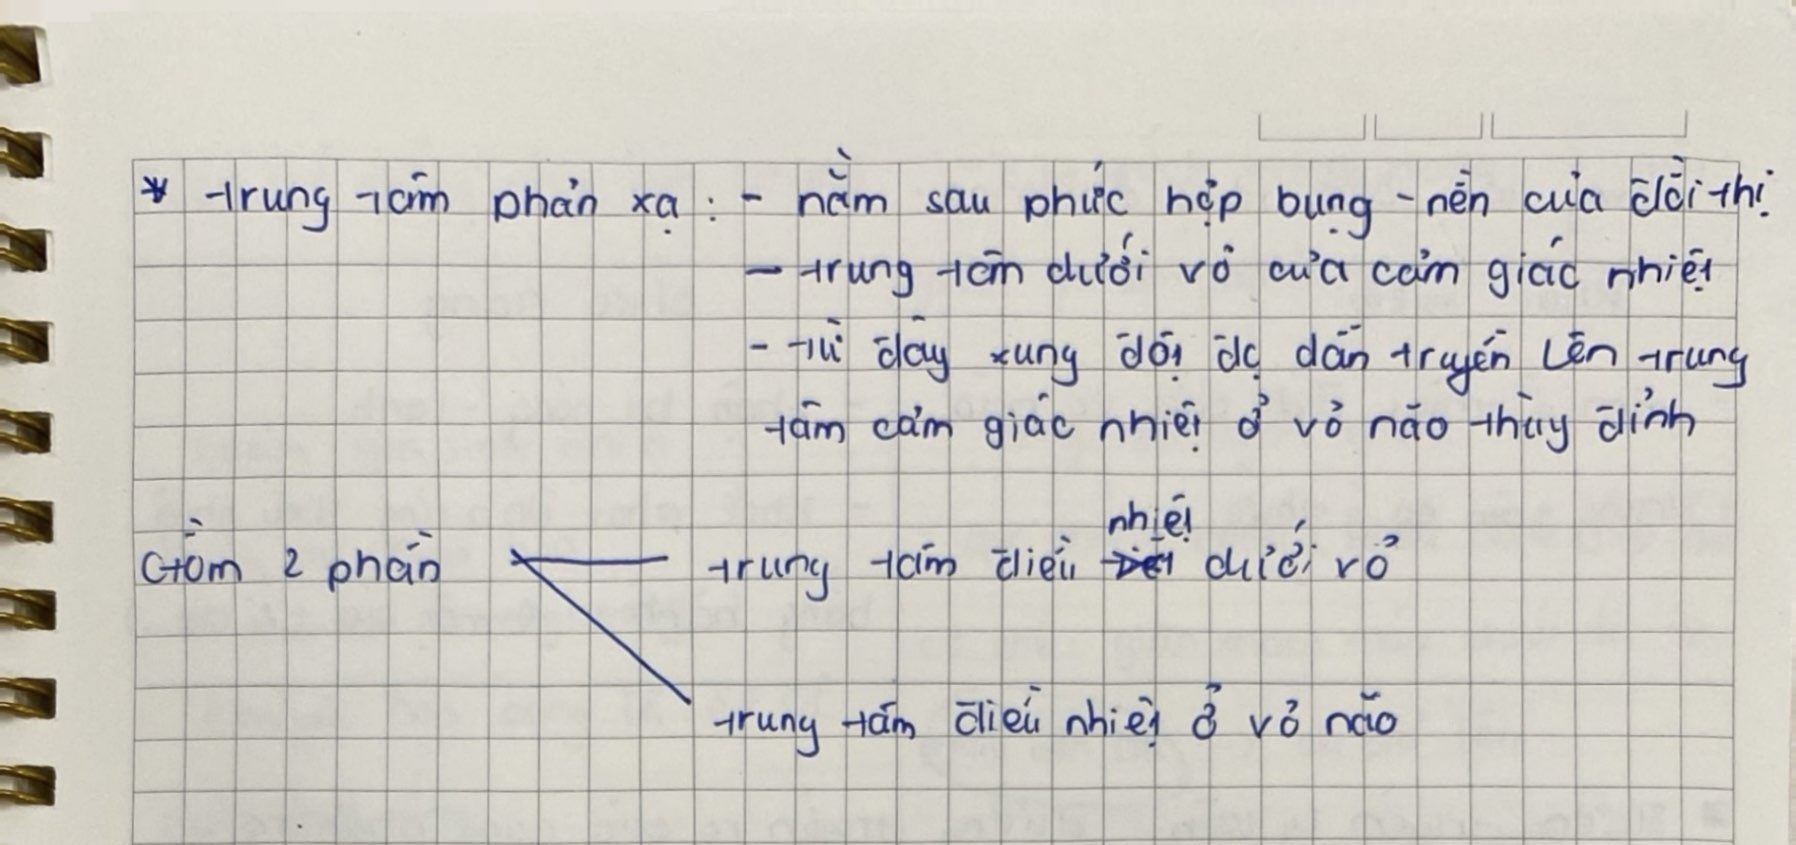 * trung tâm phản xạ : - nằm sau phức hợp bụng - nền của đồi thị
- trung tâm dưới vỏ của cảm giác nhiệt
- từ đây xung đột đc dẫn truyền lên trung
tâm cảm giác nhiệt ở vỏ não thùy đỉnh
nhiệt
Gồm 2 phần trung tâm điều dưới vỏ
trung tâm điều nhiệt ở vỏ não